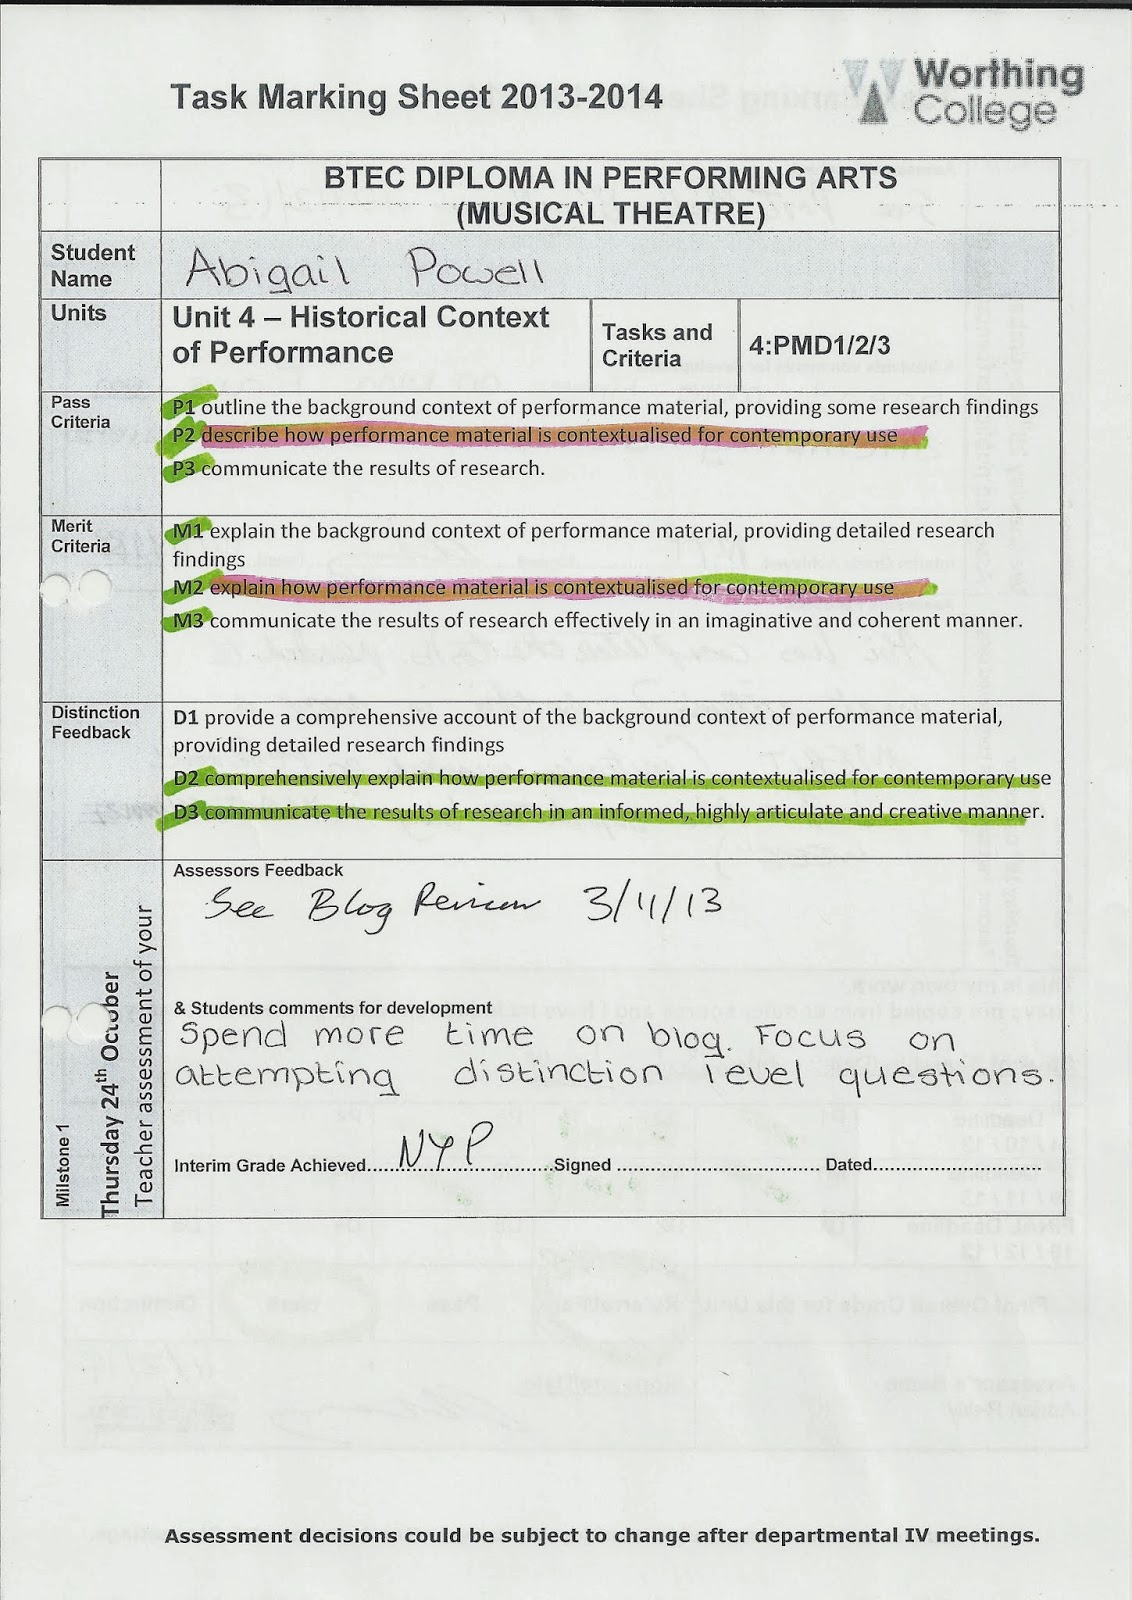 Task Marking Sheet 2013-2014
Worthing
College
BTEC DIPLOMA IN PERFORMING ARTS
(MUSICAL THEATRE)
Student
Name
Abigail Powell
Units
Unit 4 – Historical Context
of Performance
Tasks and
Criteria
4:PMD1/2/3
Pass
Criteria
P1 outline the background context of performance material, providing some research findings
P2 describe how performance material is contextualised for contemporary use
P3 communicate the results of research.
Merit
Criteria
M1 explain the background context of performance material, providing detailed research
findings
M2 explain how performance material is contextualised for contemporary use
M3 communicate the results of research effectively in an imaginative and coherent manner.
Distinction
Feedback
D1 provide a comprehensive account of the background context of performance material,
providing detailed research findings
D2 comprehensively explain how performance material is contextualised for contemporary use
D3 communicate the results of research in an informed, highly articulate and creative manner.
Milstone 1
Thursday 24th October
Teacher assessment of your
Assessors Feedback
See Blog Review 3/11/13
& Students comments for development
Spend more time on blog. Focus on
attempting distinction level questions.
Interim Grade Achieved.....NYP.....Signed ..................... Dated.....................
Assessment decisions could be subject to change after departmental IV meetings.